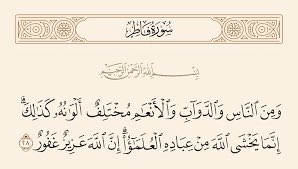 سورة فاطر
بِسْمِ اللَّهِ الرَّحْمَٰنِ الرَّحِيمِ
وَمِنَ النَّاسِ وَالدَّوَابِّ وَالْأَنْعَامِ مُخْتَلِفٌ أَلْوَانُهُ كَذَٰلِكَ ۗ
إِنَّمَا يَخْشَى اللَّهَ مِنْ عِبَادِهِ الْعُلَمَاءُ ۗ إِنَّ اللَّهَ عَزِيزٌ غَفُورٌ ٢٨